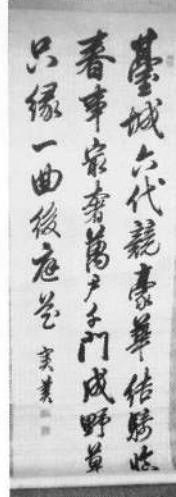 臺城六代競豪華結綺臨
春事最奢萬戶千門成野草
只緣一曲後庭花
實美